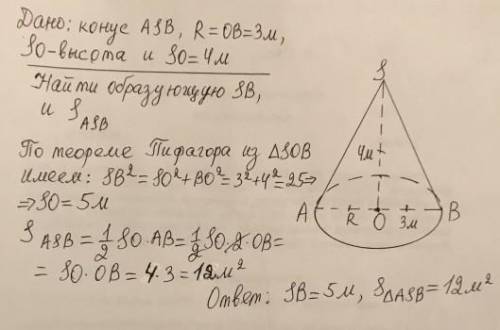 Дано: конус ASB, R=OB=3м,
SO-высота и SO=4м
Найти образующую SB,
и S_ASB
По теореме Пифагора из ΔSOB
имеем: SB²=SO²+BO²=3²+4²=25⇒
⇒SO=5м
S_ASB=1/2 SO·AB=1/2 SO·2·OB=
=SO·OB=4·3=12м²
Ответ: SB=5м, S_ΔASB=12м²
S
4м
A R O 3м B